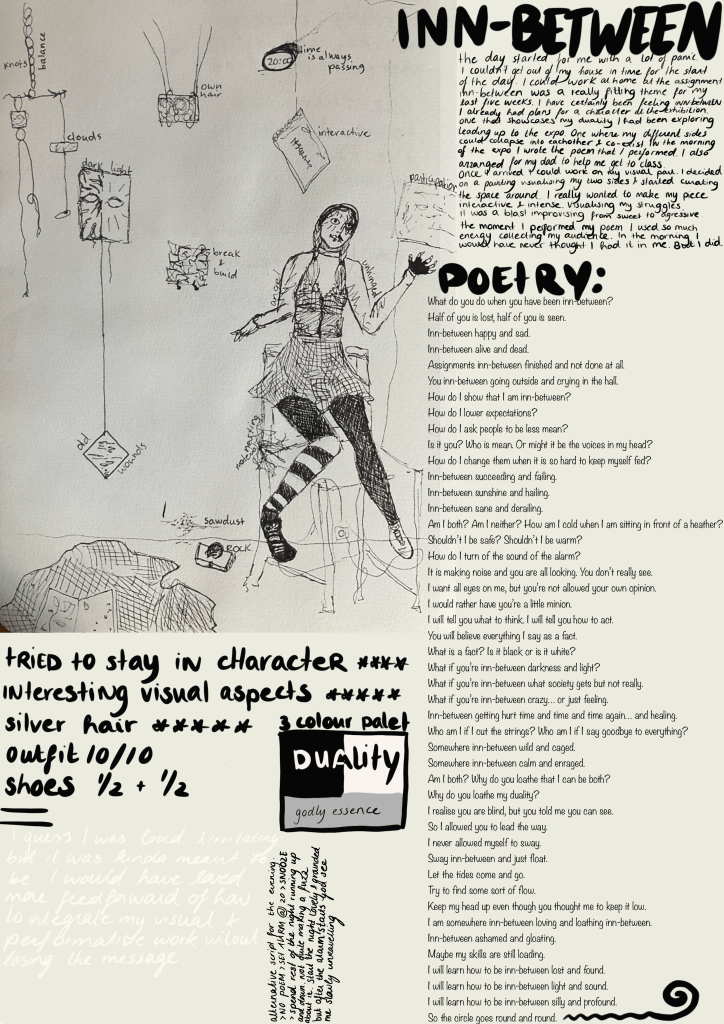 INN-BETWEEN
the day started for me with a lot of panic.
I couldn't get out of my house in time for the start
of the day. I could work at home but the assignment
inn-between was a really fitting theme for my
last five weeks. I have certainly been feeling inn-between
I already had plans for a character at the exhibition.
one that showcases my duality I had been exploring
leading up to the expo. One where my different sides
could collapse into eachother & co-exist. In the morning
of the expo I wrote the poem that I performed. I also
arranged for my dad to help me get to class.
Once I arrived I could work on my visual part. I decided
on a painting visualising my two sides & started curating
the space around. I really wanted to make my pece
interactive & intense. Visualising my struggles.
it was a blast improvising from sweet to agressive
the moment I performed my poem I used so much
energy collecting my audience. In the morning I
would have never thought I had it in me. But I did.
knots
balance
own
hair
20:00
time
is always
passing
clouds
interactive
dark light
participation
break
& build
angel
unhinged
old
wounds
sawdust
ROCK
POEtRY:
What do you do when you have been inn-between?
Half of you is lost, half of you is seen.
Inn-between happy and sad.
Inn-between alive and dead.
Assignments inn-between finished and not done at all.
You inn-between going outside and crying in the hall.
How do I show that I am inn-between?
How do I lower expectations?
How do I ask people to be less mean?
Is it you? Who is mean. Or might it be the voices in my head?
How do I change them when it is so hard to keep myself fed?
Inn-between succeeding and failing.
Inn-between sunshine and hailing.
Inn-between sane and derailing.
Am I both? Am I neither? How am I cold when I am sitting in front of a heather?
Shouldn't I be safe? Shouldn't I be warm?
How do I turn of the sound of the alarm?
It is making noise and you are all looking. You don't really see.
I want all eyes on me, but you're not allowed your own opinion.
I would rather have you're a little minion.
I will tell you what to think, I will tell you how to act.
You will believe everything I say as a fact.
What is a fact? Is it black or is it white?
What if you're inn-between darkness and light?
What if you're inn-between what society gets but not really.
What if you're inn-between crazy... or just feeling.
Inn-between getting hurt time and time and time again... and healing.
Who am I if I cut the strings? Who am I if I say goodbye to everything?
Somewhere inn-between wild and caged.
Somewhere inn-between calm and enraged.
Am I both? Why do you loathe that I can be both?
Why do you loathe my duality?
I realise you are blind, but you told me you can see.
So I allowed you to lead the way.
I never allowed myself to sway.
Sway inn-between and just float.
Let the tides come and go.
Try to find some sort of flow.
Keep my head up even though you thought me to keep it low.
I am somewhere inn-between loving and loathing inn-between.
Inn-between ashamed and gloating.
Maybe my skills are still loading.
I will learn how to be inn-between lost and found.
I will learn how to be inn-between light and sound.
I will learn how to be inn-between silly and profound.
So the circle goes round and round.
tRIED to stay in cHaracteR ****
interesting visual aspects *****
silver hair *****
outfit 10/10
shoes 1/2 + 1/2
3 colour palet
Duality
godly essence
I guess I was loud & irritating
but it was kinda meant to
be. I would have loved
more feedforward of how
to integrate my visual &
performative work witout
losing the message.
alternative script for the evening.
>NO POEM >SET ALARM @ 20 > SNOOZE
>spend rest of the night running up
and down, not quite making a fuzz
about it. start the night lovely & grounded
but after the alarm starts God see
me slowly unravelling